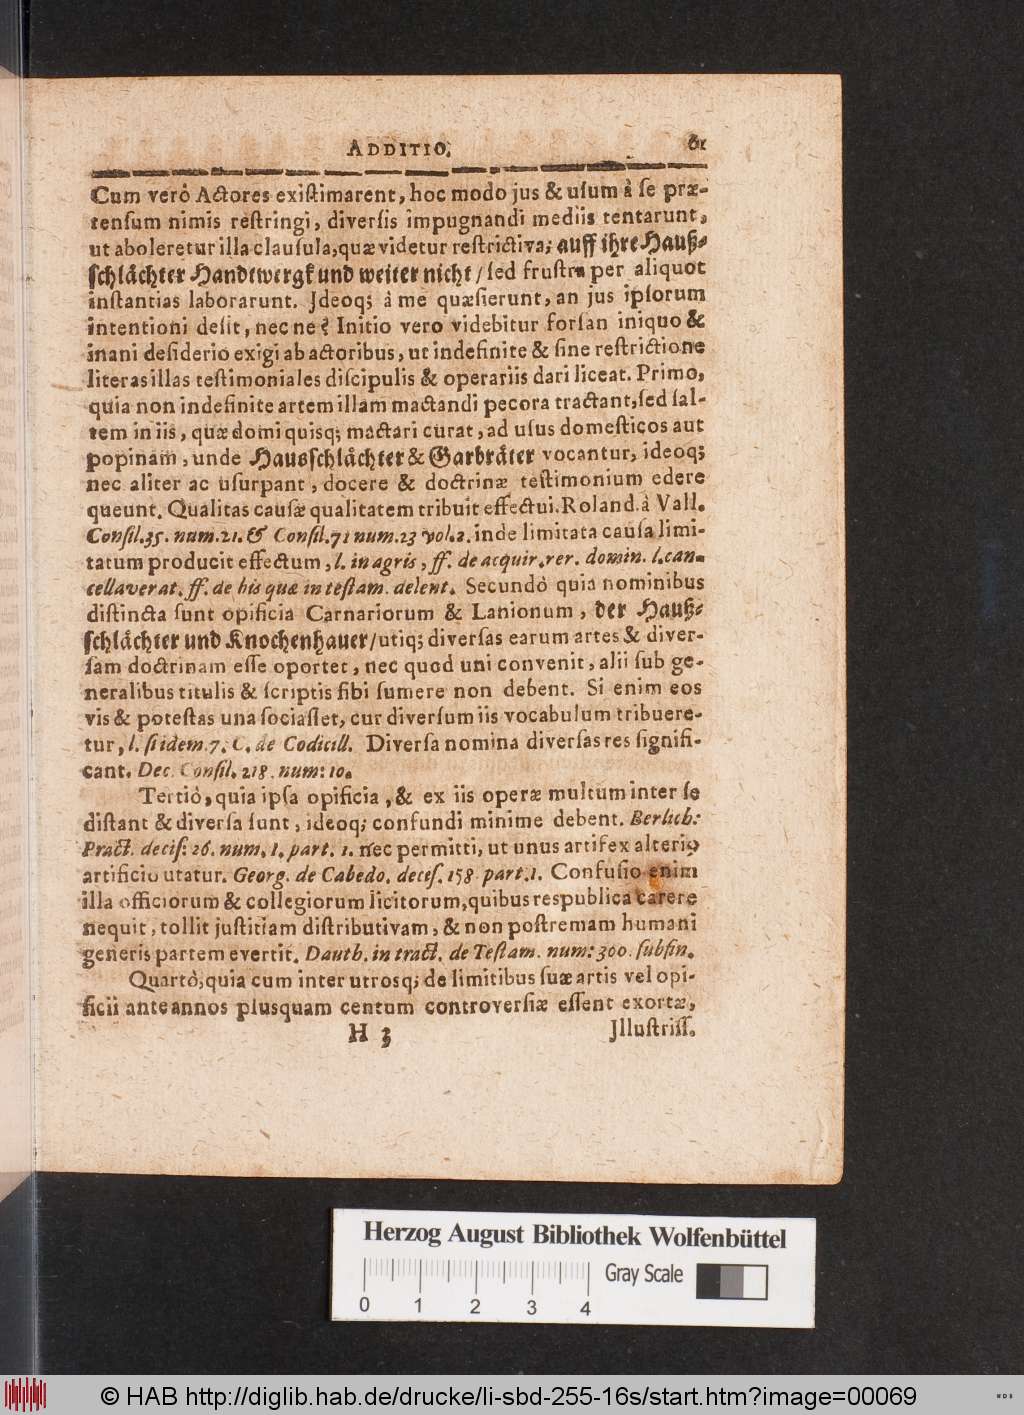 ADDITIO. 61
Cum verò Actores exiſtimarent, hoc modo jus & uſum à ſe præ-
tenſum nimis reſtringi, diverſis impugnandi mediis tentarunt,
ut aboleretur illa clauſula, quæ videtur reſtrictiva; auff ihre Hauß-
ſchlächter Handtwergk und weiter nicht / ſed fruſtra per aliquot
inſtantias laborarunt. Jdeoq; à me quæſierunt, an jus ipſorum
intentioni deſit, nec ne? Initio vero videbitur forſan iniquo &
inani deſiderio exigi ab actoribus, ut indefinite & ſine reſtrictione
literas illas teſtimoniales diſcipulis & operariis dari liceat. Primo,
quia non indefinite artem illam mactandi pecora tractant, ſed ſal-
tem in iis, quæ domi quisq; mactari curat, ad uſus domeſticos aut
popinam, unde Hausſchlächter & Garbräter vocantur, ideoq;
nec aliter ac uſurpant, docere & doctrinæ teſtimonium edere
queunt. Qualitas cauſæ qualitatem tribuit effectui. Roland. à Vall.
Conſil. 35. num. 21. & Conſil. 71 num. 23 vol. 2. inde limitata cauſa limi-
tatum producit effectum, l. in agris, ff. de acquir. rer. domin. l. can-
cellaverat. ff. de his quæ in teſtam. delent. Secundò quia nominibus
diſtincta ſunt opificia Carnariorum & Lanionum, der Hauß-
ſchlächter und Knochenhauer / utiq; diverſas earum artes & diver-
ſam doctrinam eſſe oportet, nec quod uni convenit, alii ſub ge-
neralibus titulis & ſcriptis ſibi ſumere non debent. Si enim eos
vis & poteſtas una ſociaſſet, cur diverſum iis vocabulum tribuere-
tur, l. ſi idem. 7. C. de Codicill. Diverſa nomina diverſas res ſignifi-
cant. Dec. Conſil. 218. num: 10.
Tertiò, quia ipſa opificia, & ex iis operæ multum inter ſe
diſtant & diverſa ſunt, ideoq; confundi minime debent. Berlich:
Pract. deciſ: 26. num. 1. part. 1. nec permitti, ut unus artifex alterius
artificio utatur. Georg. de Cabedo. deciſ. 158. part. 1. Confuſio enim
illa officiorum & collegiorum licitorum, quibus respublica carere
nequit, tollit juſtitiam diſtributivam, & non poſtremam humani
generis partem evertit. Dauth. in tract. de Teſtam. num: 300. ſub fin.
Quartò, quia cum inter utrosq; de limitibus ſuæ artis vel opi-
ficii ante annos plusquam centum controverſiæ eſſent exortæ,
H 3 Jlluſtriſſ.
Herzog August Bibliothek Wolfenbüttel
Gray Scale
0 1 2 3 4
© HAB http://diglib.hab.de/drucke/li-sbd-255-16s/start.htm?image=00069